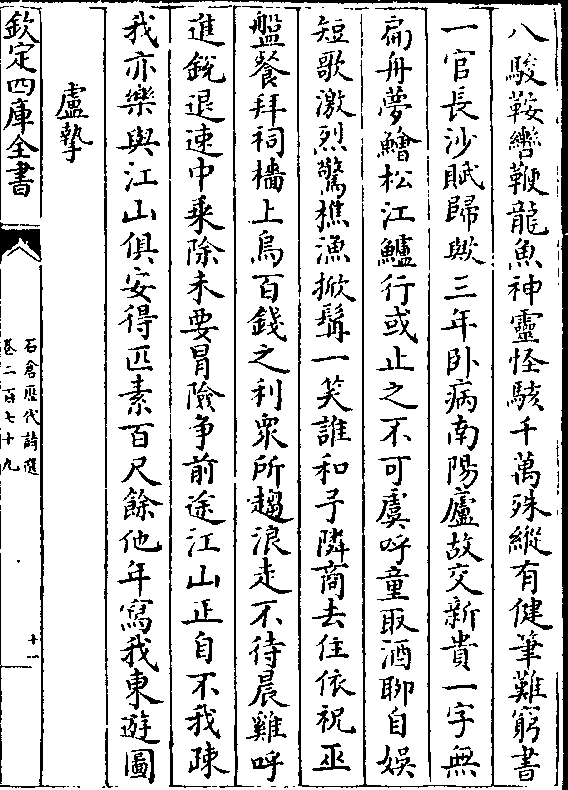 八駿鞍轡鞭龍魚神靈怪駭千萬殊縱有健筆難窮書
一官長沙賦歸歟三年卧病南陽廬故交新貴一字無
扁舟夢鱠松江鱸行或止之不可虞呼童取酒聊自娛
短歌激烈驚樵漁掀髯一笑誰和予隣商去住依祝巫
盤餐拜祠檣上烏百錢之利衆所趨浪走不待晨雞呼
進銳退速中乘除未要冒險争前途江山正自不我疎
我亦樂與江山俱安得匹素百尺餘他年寫我東遊圖
盧摯
欽定四庫全書
石倉歷代詩選
卷二百七十九
十一